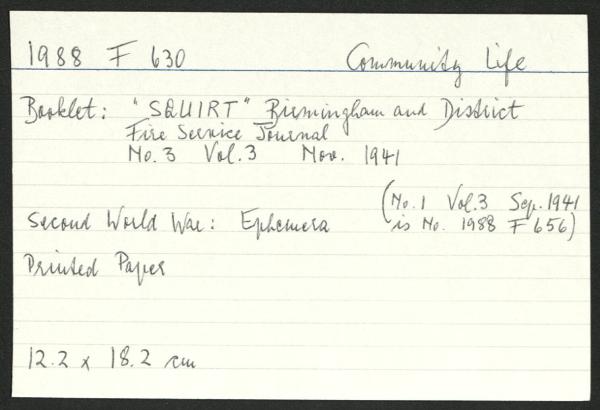 1988 F 630 Community Life
Booklet: "SQUIRT" Birmingham and District
Fire Service Journal
No. 3 Vol. 3 Nov. 1941
(No. 1 Vol. 3 Sep. 1941
Second World War: Ephemera is No. 1988 F 656)
Printed Paper
12.2 x 18.2 cm